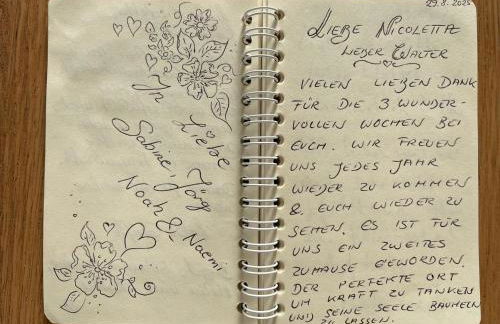 In Liebe
Sabine, Jörg
Noah & Naemi
29.8.2025
LIEBE NICOLETTA
LIEBER WALTER
VIELEN LIEBEN DANK
FÜR DIE 3 WUNDER-
VOLLEN WOCHEN BEI
EUCH. WIR FREUEN
UNS JEDES JAHR
WIEDER ZU KOMMEN
& EUCH WIEDER ZU
SEHEN. ES IST FÜR
UNS EIN ZWEITES
ZUHAUSE GEWORDEN.
DER PERFEKTE ORT
UM KRAFT ZU TANKEN
UND SEINE SEELE BAUMELN
ZU LASSEN.